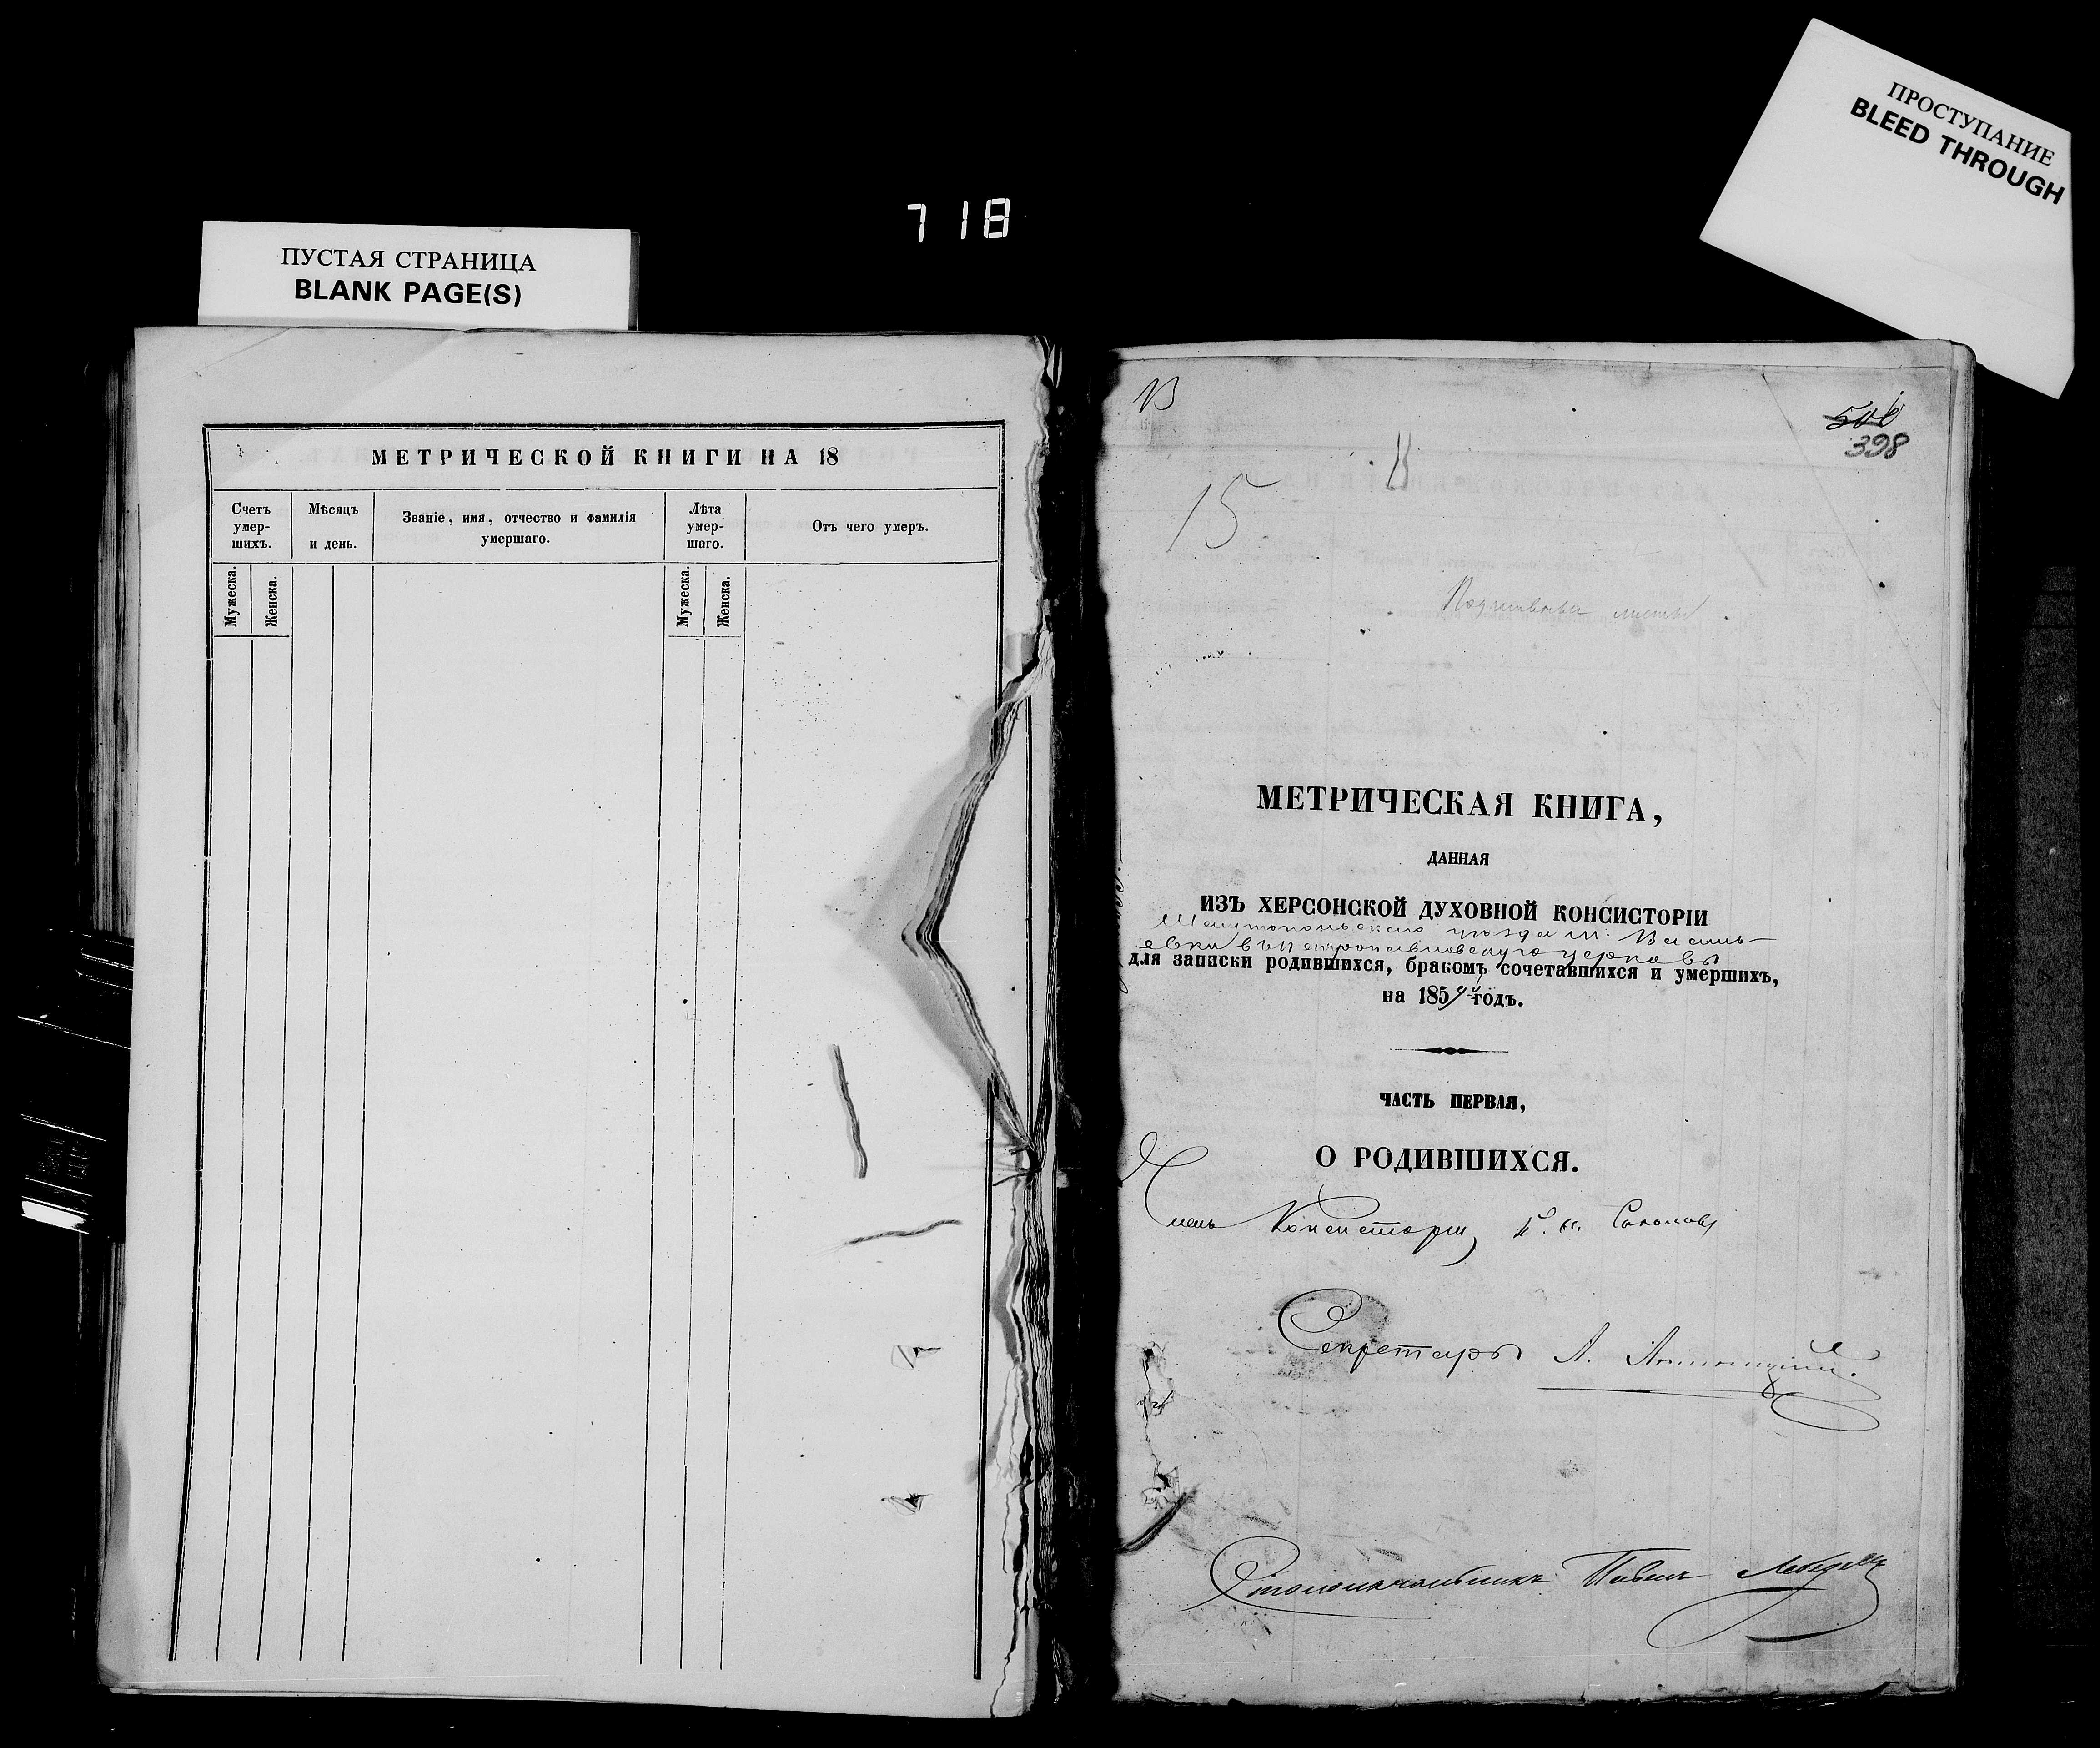 ПРОСТУПАНИЕ
BLEED THROUGH
718
ПУСТАЯ СТРАНИЦА
BLANK PAGE(S)
МЕТРИЧЕСКОЙ КНИГИ НА 18
Счетъ умер-шихъ.
Мѣсяцъ и день.
Званіе, имя, отчество и фамилія умершаго.
Лѣта умер-шаго.
Отъ чего умеръ.
Мужеска.
Женска.
Мужеска.
Женска.
13
500
398
15
листы
МЕТРИЧЕСКАЯ КНИГА,
ДАННАЯ
ИЗЪ ХЕРСОНСКОЙ ДУХОВНОЙ КОНСИСТОРІИ
Мелитопольскаго уѣзда м. Василь-
евки въ Петропавловскую церковь
для записки родившихся, бракомъ сочетавшихся и умершихъ,
на 1859й годъ.
ЧАСТЬ ПЕРВАЯ,
О РОДИВШИХСЯ.
Членъ Консисторіи
Секретарь А.
Столоначальникъ Павелъ Лебедевъ